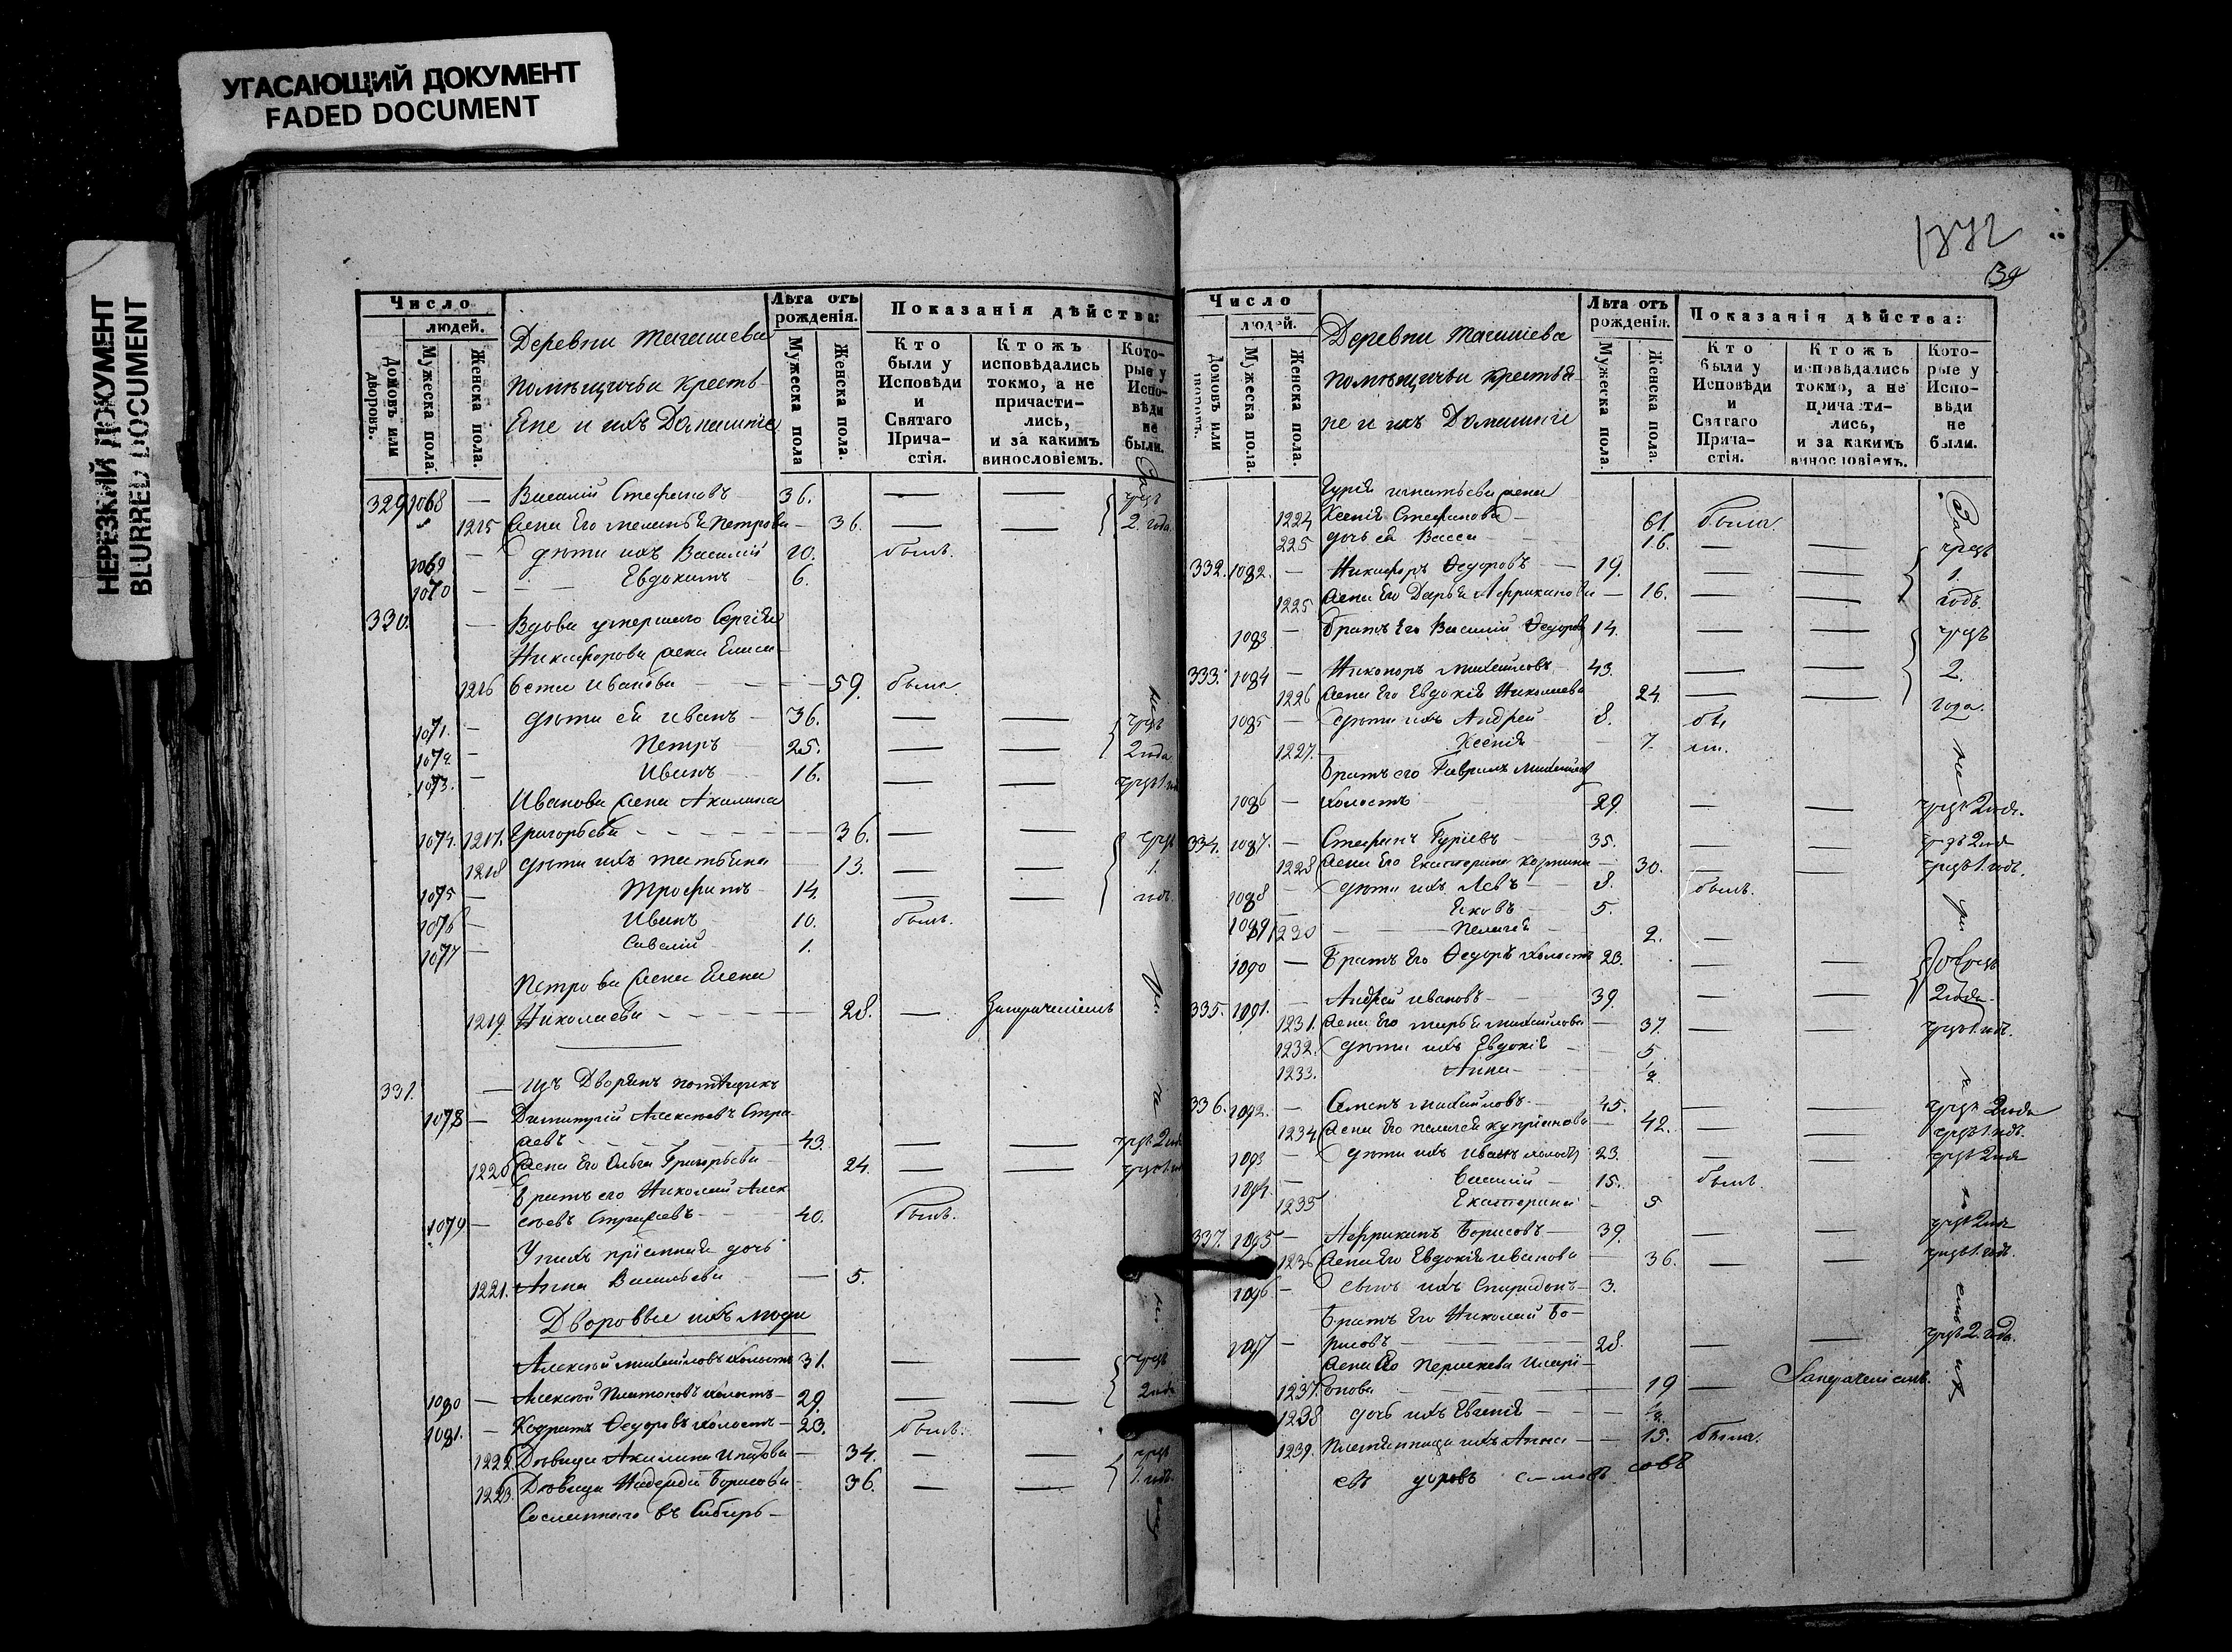 УГАСАЮЩИЙ ДОКУМЕНТ
FADED DOCUMENT
НЕРЕЗКИЙ ДОКУМЕНТ
BLURRED DOCUMENT
Число
людей.
Домовъ или дворовъ.
Мужеска пола.
Женска пола.
Деревни
помѣщичьи крестья-
не и ихъ домашніе
Лѣта отъ рожденія.
Мужеска пола
Женска пола.
Показанія дѣйства:
Кто были у Исповѣди и Святаго Причастія.
Ктожъ исповѣдались токмо, а не причастились, и за какимъ винословіемъ.
Которые у Исповѣди не были.
329 1068 — Василій Стефановъ 36. — —
1215 жена его Меланья Петрова — 36. — — 2 года
1069 — дѣти ихъ Василій 10. былъ.
1070 — — Евдокимъ 6.
330. — Вдова умершаго Сергія
Никифорова жена Елиса-
1216 вета Иванова — 59. была.
1071. — дѣти ея Иванъ 36. — —
1072. — Петръ 25. — — 2 года
1073. — Иванъ 16. — —
Иванова жена Акилина
1074. 1217. Григорьева — 36. — —
1218 дѣти ихъ Татьяна — 13. — — 1.
1075 — Трофимъ 14. — — годъ
1076 — Иванъ 10. былъ.
1077 — Савелій 1.
Петрова жена Елена
1219. Николаева — 28. —
331. — изъ Дворянъ помѣщикъ
1078 — Димитрій Алексѣевъ Стра-
жевъ 43. — — 2 года
1220 жена его Ольга Григорьева 24. — —
братъ его Николай Алек-
1079 — сѣевъ Стражевъ 40. былъ.
У нихъ пріемная дочь
1221. Анна Васильева — 5.
Дворовые ихъ люди
Алексѣй Михайловъ холостъ 31. — —
1080 — Алексѣй Платоновъ холостъ 29. — — 2 года
1081. — Кодратъ Ѳедоровъ холостъ 23. былъ.
1222. Дѣвица Акилина — 34. — —
1223. Дѣвица Надежда Борисова 36. — — 1. годъ
Сосланнаго въ Сибирь —
1372
39
Число
людей.
Домовъ или дворовъ.
Мужеска пола.
Женска пола.
Деревни
помѣщичьи крестья-
не и ихъ домашніе
Лѣта отъ рожденія.
Мужеска пола.
Женска пола.
Показанія дѣйства:
Кто были у Исповѣди и Святаго Причастія.
Ктожъ исповѣдались токмо, а не причастились, и за какимъ винословіемъ.
Которые у Исповѣди не были.
Гурія Игнатьева жена
1224 Ксенія Стефанова — 61. была.
225 дочь ея Васса 16. — —
332. 1082. — Никифоръ Ѳедоровъ — 19. — — 1.
1225 жена его Дарья Африканова — 16. — — годъ
1083 — братъ его Василій Ѳедоровъ 14. — —
333. 1084 — Никоноръ Михайловъ 43. — — 2.
1226 жена его Евдокія Николаева 24. — — года.
1085 — дѣти ихъ Андрей 8. бы
1227. Ксенія 7. ли.
братъ его Гавріилъ Михайловъ
1086 — холостъ 29. — — 2 года.
334. 1087. — Стефанъ Гуріевъ — 35. — — 2 года
1228 жена его Екатерина — 30. — — 1. годъ.
1088 — дѣти ихъ Левъ — 8. былъ.
1089 — Яковъ 5.
1230 — Пелагея 2. —
1090 — братъ его Ѳедоръ холостъ 23. — —
335. 1091. — Андрей Ивановъ — 39. — — 2 года
1231. жена его Марья Михайлова — 37. — — 1. годъ.
1232. дѣти ихъ Евдокія — 5
1233. Анна — 1/2.
336. 1092. — Семенъ Михайловъ 45. — — 2 года
1234 жена его Пелагея Купріянова — 42. — — 1. годъ.
1093 — дѣти ихъ Иванъ холостъ 23. — — 2 года
1094. — Василій — 15. былъ.
1235 Екатерина — 5
337. 1095 — Африканъ Борисовъ — 39. — — 2 года
1236 жена его Евдокія Иванова — 36. — — 1. годъ.
1096 — сынъ ихъ Спиридонъ — 3.
братъ его Николай Бо-
1097 — рисовъ — 28. — — 2. года.
жена его
1237. — 19 —
1238 дочь ихъ Евгенія — 1/2.
1239. племянница ихъ Анна — 15. была.